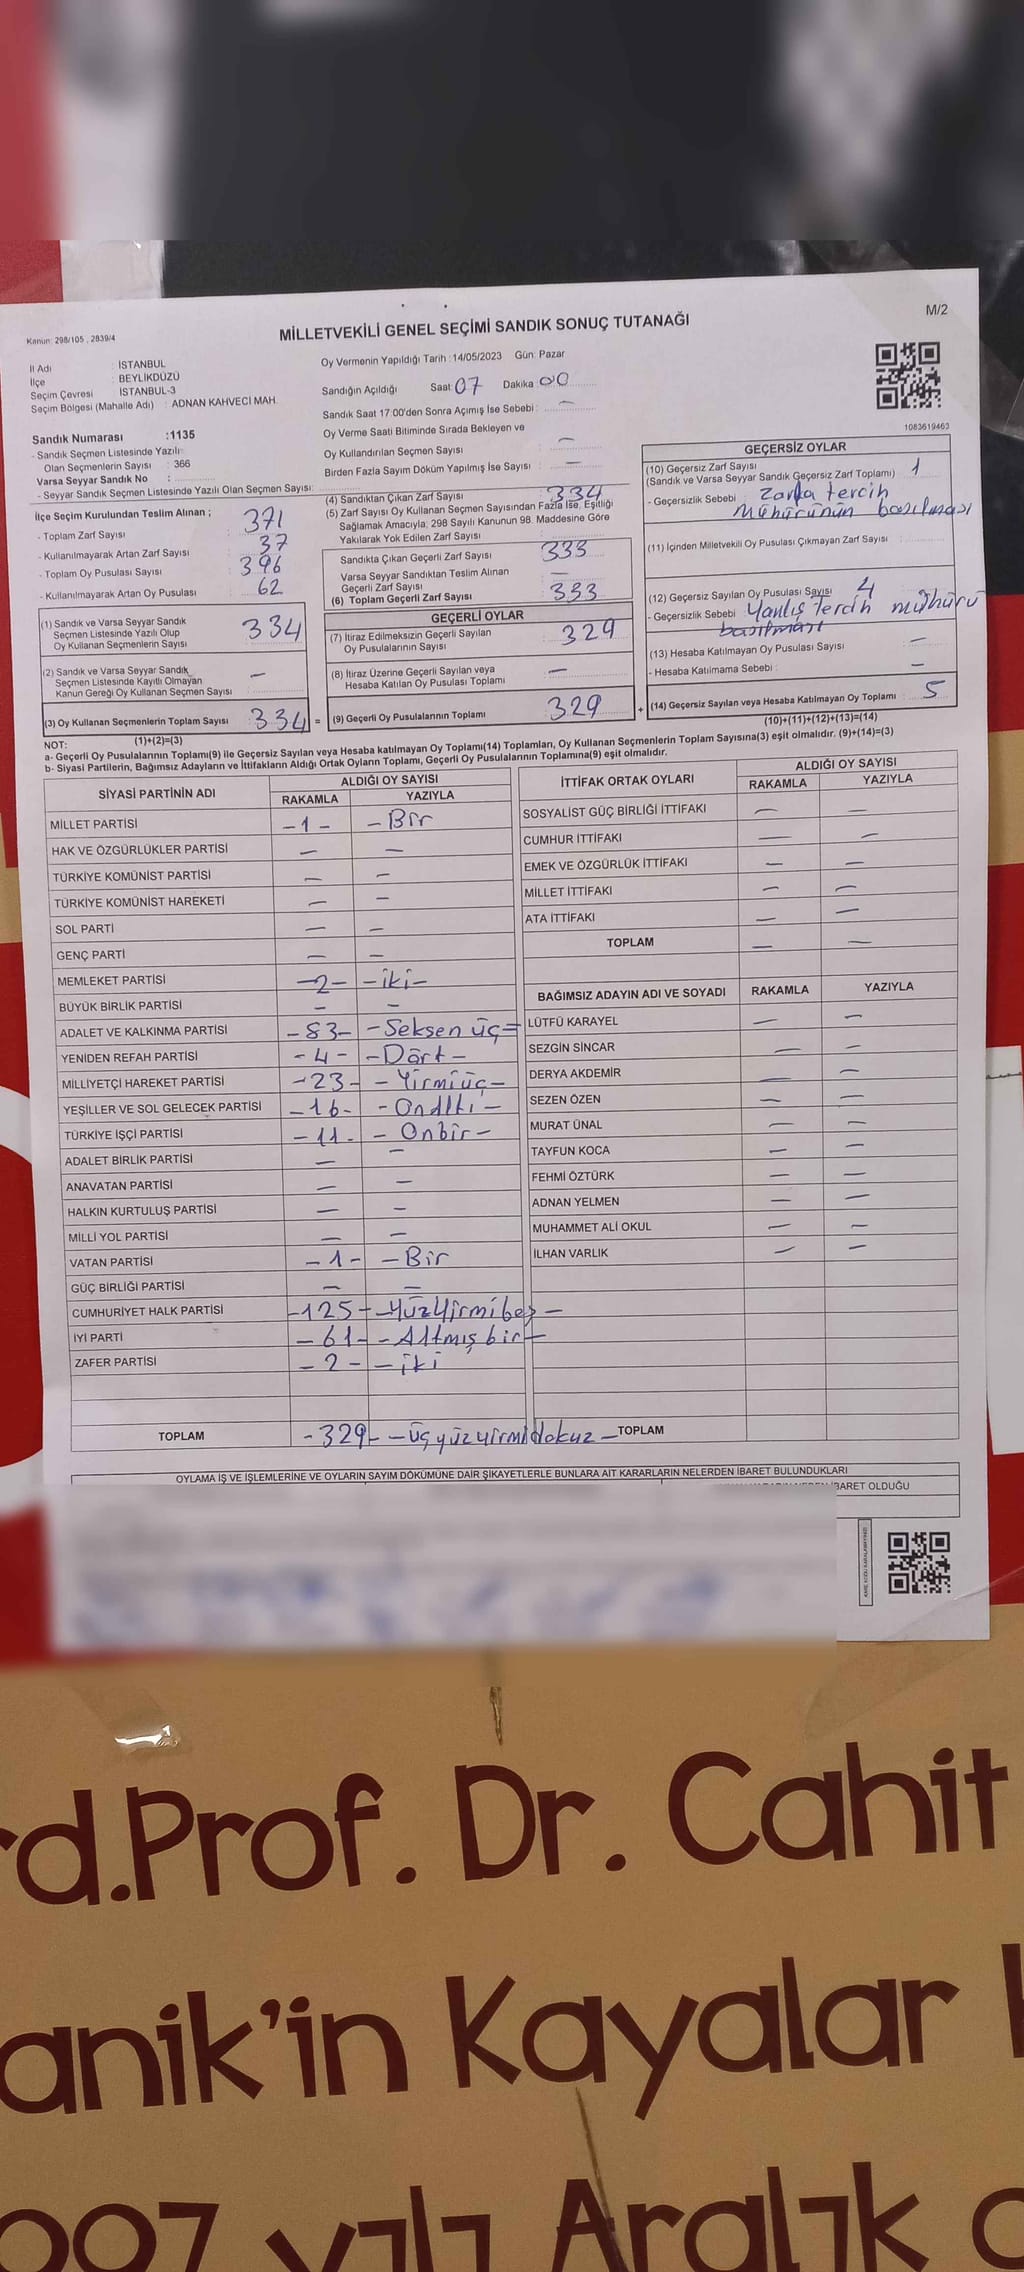 M/2
Kanun: 298/105 , 2839/4
MİLLETVEKİLİ GENEL SEÇİMİ SANDIK SONUÇ TUTANAĞI
İl Adı : İSTANBUL
İlçe : BEYLİKDÜZÜ
Seçim Çevresi : İSTANBUL-3
Seçim Bölgesi (Mahalle Adı) : ADNAN KAHVECİ MAH.
Sandık Numarası :1135
- Sandık Seçmen Listesinde Yazılı
Olan Seçmenlerin Sayısı : 366
Varsa Seyyar Sandık No :
- Seyyar Sandık Seçmen Listesinde Yazılı Olan Seçmen Sayısı:
Oy Vermenin Yapıldığı Tarih : 14/05/2023 Gün: Pazar
Sandığın Açıldığı Saat: 07 Dakika 00
Sandık Saat 17:00'den Sonra Açımış İse Sebebi : —
Oy Verme Saati Bitiminde Sırada Bekleyen ve
Oy Kullandırılan Seçmen Sayısı —
Birden Fazla Sayım Döküm Yapılmış İse Sayısı : —
1083619463
İlçe Seçim Kurulundan Teslim Alınan ;
- Toplam Zarf Sayısı 371
- Kullanılmayarak Artan Zarf Sayısı 37
- Toplam Oy Pusulası Sayısı 396
- Kullanılmayarak Artan Oy Pusulası 62
(1) Sandık ve Varsa Seyyar Sandık
Seçmen Listesinde Yazılı Olup
Oy Kullanan Seçmenlerin Sayısı 334
(2) Sandık ve Varsa Seyyar Sandık
Seçmen Listesinde Kayıtlı Olmayan
Kanun Gereği Oy Kullanan Seçmen Sayısı —
(3) Oy Kullanan Seçmenlerin Toplam Sayısı 334 =
(1)+(2)=(3)
(4) Sandıktan Çıkan Zarf Sayısı 334
(5) Zarf Sayısı Oy Kullanan Seçmen Sayısından Fazla İse, Eşitliği
Sağlamak Amacıyla; 298 Sayılı Kanunun 98. Maddesine Göre
Yakılarak Yok Edilen Zarf Sayısı :
Sandıkta Çıkan Geçerli Zarf Sayısı 333
Varsa Seyyar Sandıktan Teslim Alınan
Geçerli Zarf Sayısı —
(6) Toplam Geçerli Zarf Sayısı 333
GEÇERLİ OYLAR
(7) İtiraz Edilmeksizin Geçerli Sayılan
Oy Pusulalarının Sayısı 329
(8) İtiraz Üzerine Geçerli Sayılan veya
Hesaba Katılan Oy Pusulası Toplamı —
(9) Geçerli Oy Pusulalarının Toplamı 329 +
GEÇERSİZ OYLAR
(10) Geçersiz Zarf Sayısı
(Sandık ve Varsa Seyyar Sandık Geçersiz Zarf Toplamı) 1
- Geçersizlik Sebebi : Zarfa tercih
mühürünün basılması
(11) İçinden Milletvekili Oy Pusulası Çıkmayan Zarf Sayısı :
(12) Geçersiz Sayılan Oy Pusulası Sayısı 4
- Geçersizlik Sebebi Yanlış Tercih mühürü
basılması
(13) Hesaba Katılmayan Oy Pusulası Sayısı —
- Hesaba Katılmama Sebebi : —
(14) Geçersiz Sayılan veya Hesaba Katılmayan Oy Toplamı 5
(10)+(11)+(12)+(13)=(14)
NOT:
a- Geçerli Oy Pusulalarının Toplamı(9) ile Geçersiz Sayılan veya Hesaba katılmayan Oy Toplamı(14) Toplamları, Oy Kullanan Seçmenlerin Toplam Sayısına(3) eşit olmalıdır. (9)+(14)=(3)
b- Siyasi Partilerin, Bağımsız Adayların ve İttifakların Aldığı Ortak Oyların Toplamı, Geçerli Oy Pusulalarının Toplamına(9) eşit olmalıdır.
SİYASİ PARTİNİN ADI ALDIĞI OY SAYISI
RAKAMLA YAZIYLA
MİLLET PARTİSİ -1- -Bir
HAK VE ÖZGÜRLÜKLER PARTİSİ — —
TÜRKİYE KOMÜNİST PARTİSİ — —
TÜRKİYE KOMÜNİST HAREKETİ — —
SOL PARTİ — —
GENÇ PARTİ — —
MEMLEKET PARTİSİ -2- -iki-
BÜYÜK BİRLİK PARTİSİ — —
ADALET VE KALKINMA PARTİSİ -83- -Seksen üç=
YENİDEN REFAH PARTİSİ -4- -Dört-
MİLLİYETÇİ HAREKET PARTİSİ -23- -Yirmiüç-
YEŞİLLER VE SOL GELECEK PARTİSİ -16- -Onaltı-
TÜRKİYE İŞÇİ PARTİSİ -11- -Onbir-
ADALET BİRLİK PARTİSİ — —
ANAVATAN PARTİSİ — —
HALKIN KURTULUŞ PARTİSİ — —
MİLLİ YOL PARTİSİ — —
VATAN PARTİSİ -1- -Bir
GÜÇ BİRLİĞİ PARTİSİ — —
CUMHURİYET HALK PARTİSİ -125- -Yüzyirmibeş-
İYİ PARTİ -61- -Altmış bir-
ZAFER PARTİSİ -2- -iki
TOPLAM -329- -üçyüzyirmidokuz-
İTTİFAK ORTAK OYLARI ALDIĞI OY SAYISI
RAKAMLA YAZIYLA
SOSYALİST GÜÇ BİRLİĞİ İTTİFAKI — —
CUMHUR İTTİFAKI — —
EMEK VE ÖZGÜRLÜK İTTİFAKI — —
MİLLET İTTİFAKI — —
ATA İTTİFAKI — —
TOPLAM — —
BAĞIMSIZ ADAYIN ADI VE SOYADI RAKAMLA YAZIYLA
LÜTFÜ KARAYEL — —
SEZGİN SİNCAR — —
DERYA AKDEMİR — —
SEZEN ÖZEN — —
MURAT ÜNAL — —
TAYFUN KOCA — —
FEHMİ ÖZTÜRK — —
ADNAN YELMEN — —
MUHAMMET ALİ OKUL — —
İLHAN VARLIK — —
TOPLAM
OYLAMA İŞ VE İŞLEMLERİNE VE OYLARIN SAYIM DÖKÜMÜNE DAİR ŞİKAYETLERLE BUNLARA AİT KARARLARIN NELERDEN İBARET BULUNDUKLARI
BARET OLDUĞU
rd.Prof. Dr. Cahit
anik'in Kayalar
007 yılı Aralık